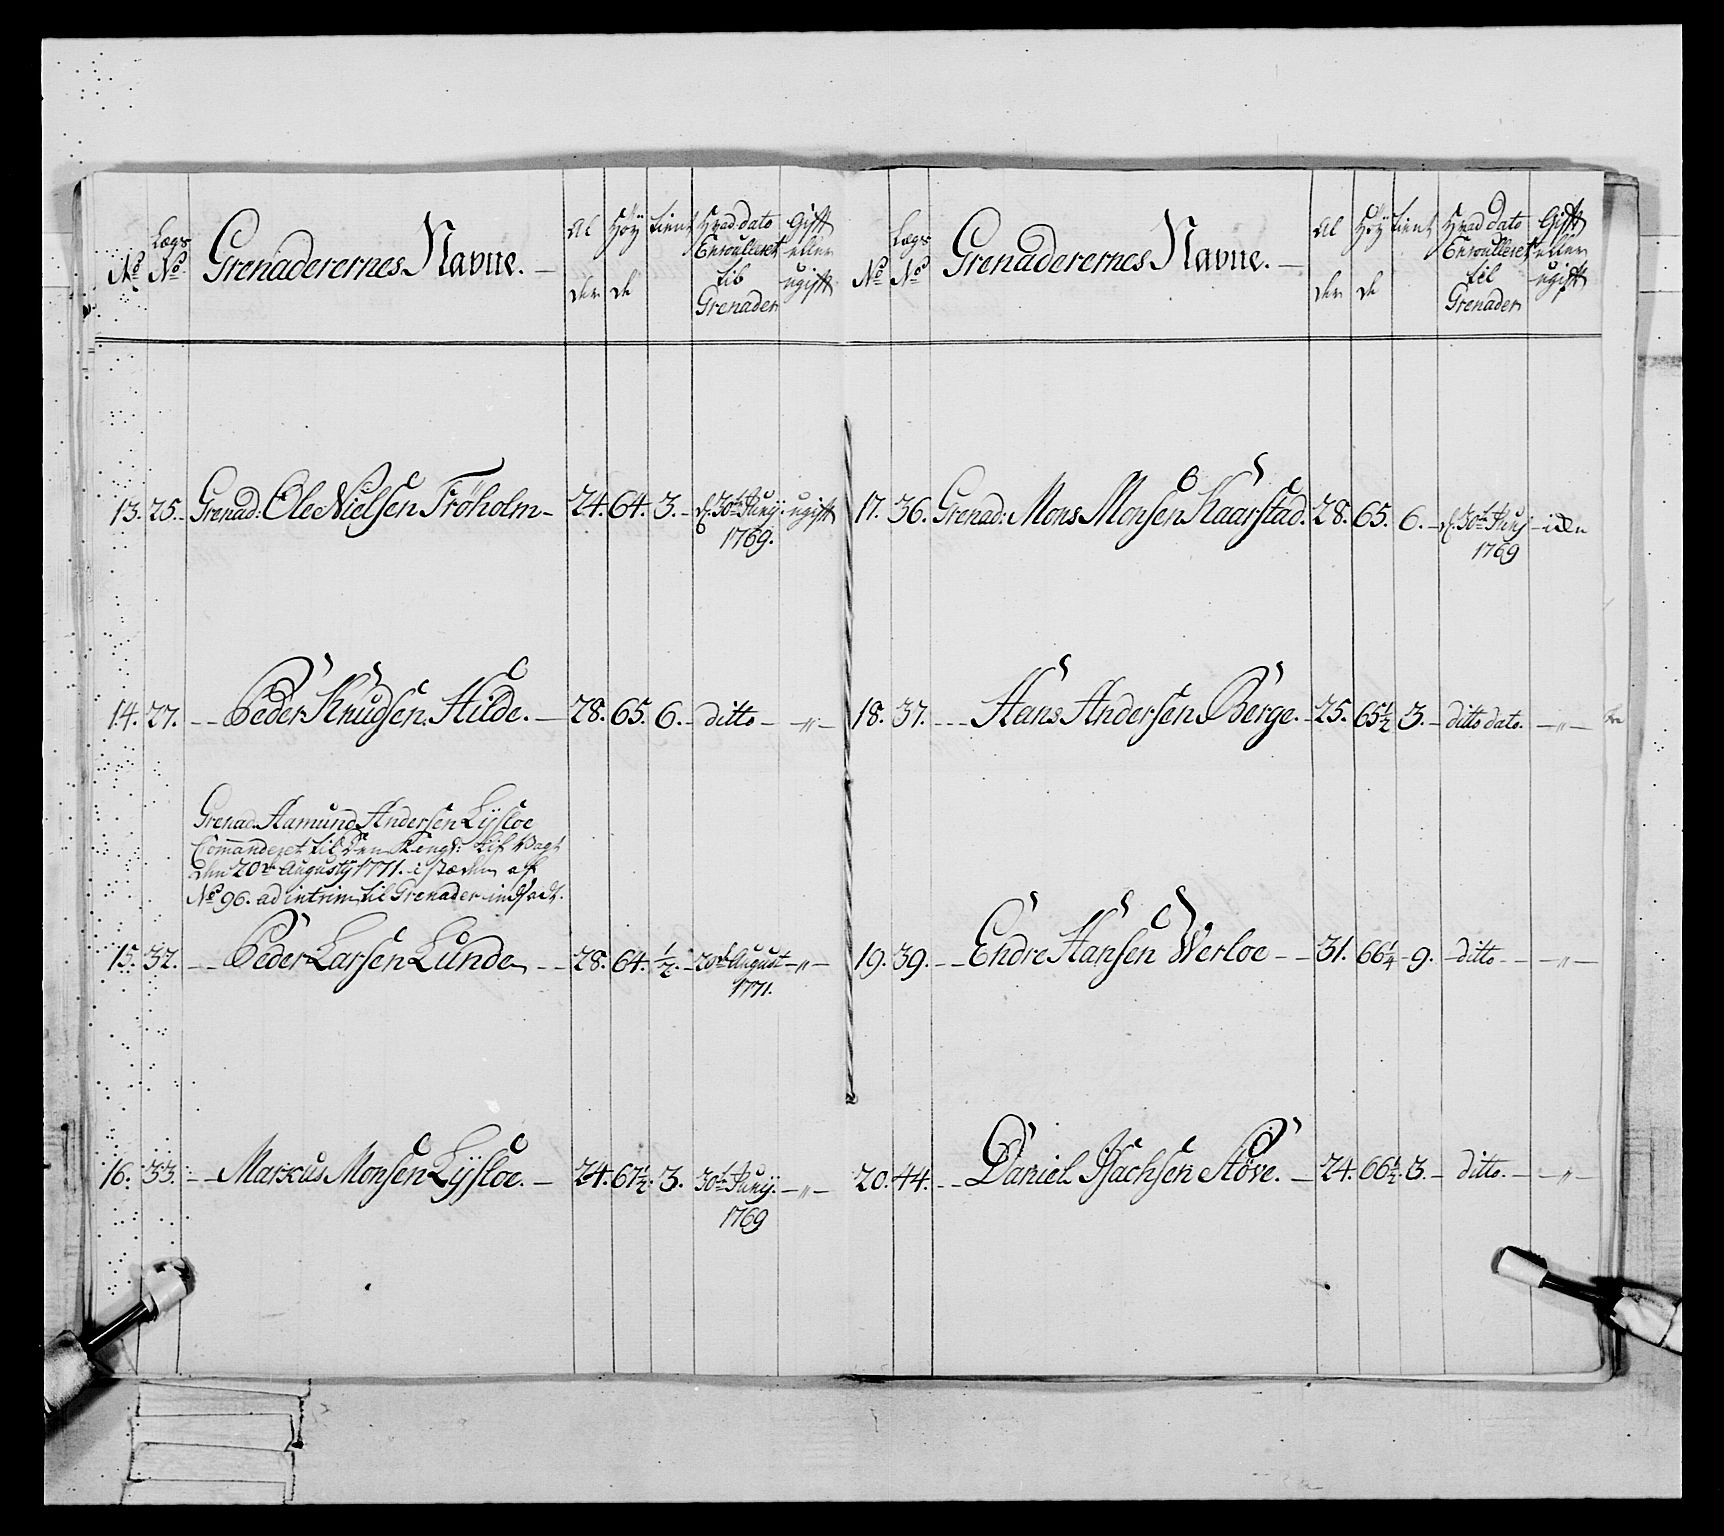 No Lægs No Grenaderernes Navne. Alder Höyde tient Hvad dato Enroulleret til Grenader Gift eller ugift
13. 25. Grenad: Ole Nielsen Fröholm 24. 64. 3. d. 30te Junij 1769. ugift
14. 27. Peder Knudsen Hilde. 28. 65. 6. ditto „
Grenad. Aamund Andersen Lÿsloe
Commanderet til Den Kongl: Lif Vagt
den 20de Augustij 1771. i stæden af
No 96. ad intrim til Grenader indsadt.
15. 32. Peder Larsen Lunde 28. 64. 1/2. 20de August 1771. „
16. 33. Markus Monsen Lÿsloe. 24. 67 1/2. 3. 30te Junij. 1769 „
No Lægs No Grenaderernes Navne. Alder Höyde tient Hvad dato Enroulleret til Grenader Gift eller ugift
17. 36. Grenad: Mons Monsen Kaarstad. 28. 65. 6. d. 30te Junij 1769
18. 37. Hans Andersen Berge. 25. 65 1/2 3. ditto dato. „
19. 39. Endre Hansen Werloe 31. 66 1/4 9. ditto „
20. 44. Daniel Isachsen Støve. 24. 66 1/2. 3. ditto. „